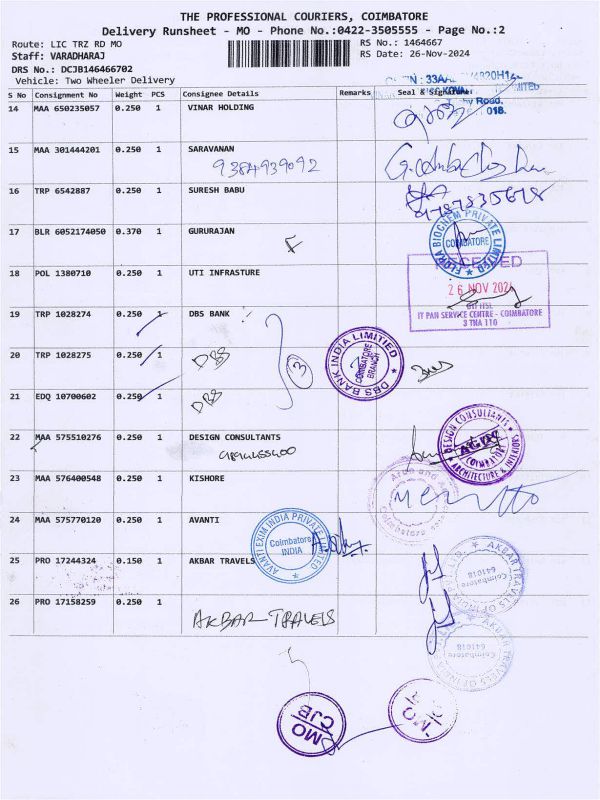 THE PROFESSIONAL COURIERS, COIMBATORE
Delivery Runsheet - MO - Phone No.:0422-3505555 - Page No.:2
Route: LIC TRZ RD MO
RS No.: 1464667
Staff: VARADHARAJ
RS Date: 26-Nov-2024
DRS No.: DCJB146466702
Vehicle: Two Wheeler Delivery
S No Consignment No Weight PCS Consignee Details Remarks Seal & Signature
14 MAA 650235057 0.250 1 VINAR HOLDING
Road,
018.
15 MAA 301444201 0.250 1 SARAVANAN
9384939092
16 TRP 6542887 0.250 1 SURESH BABU
17 BLR 6052174050 0.370 1 GURURAJAN
FLORA BIOCHEM PRIVATE LIMITED
COIMBATORE
18 POL 1380710 0.250 1 UTI INFRASTURE
26 NOV 202
IT PAN SERVICE CENTRE - COIMBATORE
3 TNA 110
19 TRP 1028274 0.250 1 DBS BANK
20 TRP 1028275 0.250 1
DBS
3
DBS BANK INDIA LIMITED
COIMBATORE BRANCH
21 EDQ 10700602 0.250 1
DBS
22 MAA 575510276 0.250 1 DESIGN CONSULTANTS
DESIGN CONSULTANTS
COIMBATORE
ARCHITECTURE & INTERIORS
23 MAA 576400548 0.250 1 KISHORE
24 MAA 575770120 0.250 1 AVANTI
AVANTI EXIM INDIA PRIVATE LIMITED
Coimbatore
INDIA
25 PRO 17244324 0.150 1 AKBAR TRAVELS
AKBAR TRAVELS OF INDIA
Coimbatore
641018
26 PRO 17158259 0.250 1
AKBAR TRAVELS
AKBAR TRAVELS OF INDIA
Coimbatore
641018
MO
CJB
MO